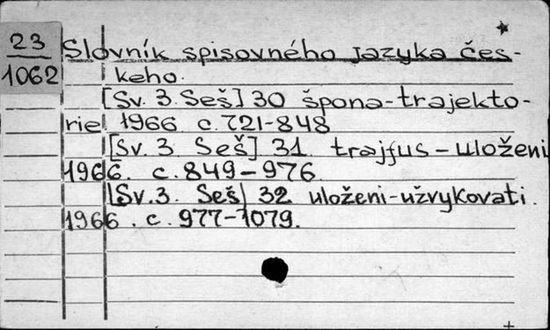 23
1062
Slovník spisovného jazyka čes-
keho.
[Sv. 3. Seš] 30 špona-trajekto-
rie 1966. c. 721-848
[Sv. 3. Seš] 31. trajfus-uloženi
1966. c. 849-976.
[Sv. 3. Seš] 32 uloženi-užvykovati.
1966. c. 977-1079.